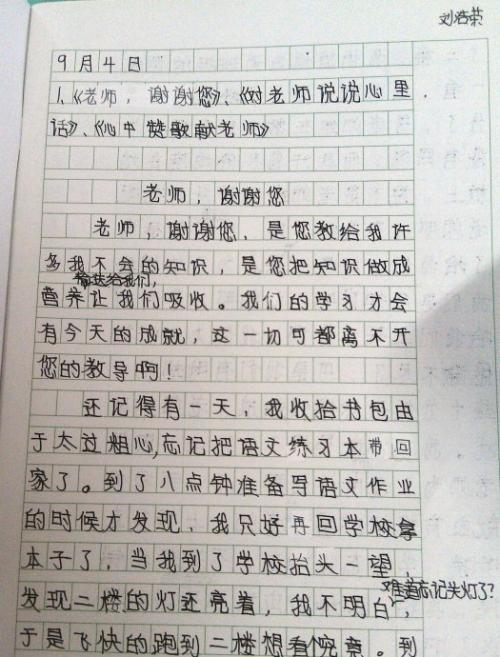 刘浩荣
9月4日
1、《老师，谢谢您》、《对老师说说心里
话》、《心中赞歌献老师》
老师，谢谢您
老师，谢谢您，是您教给我许
多我不会的知识，是您把知识做成
输送给我们，
营养让我们吸收。我们的学习才会
有今天的成就，这一切可都离不开
您的教导啊！
还记得有一天，我收拾书包由
于太过粗心，忘记把语文练习本带回
家了。到了八点钟准备写语文作业
的时候才发现，我只好再回学校拿
本子了，当我到了学校抬头一望，
难道忘记关灯了？
发现二楼的灯还亮着，我不明白，
于是飞快的跑到二楼想看究竟。到